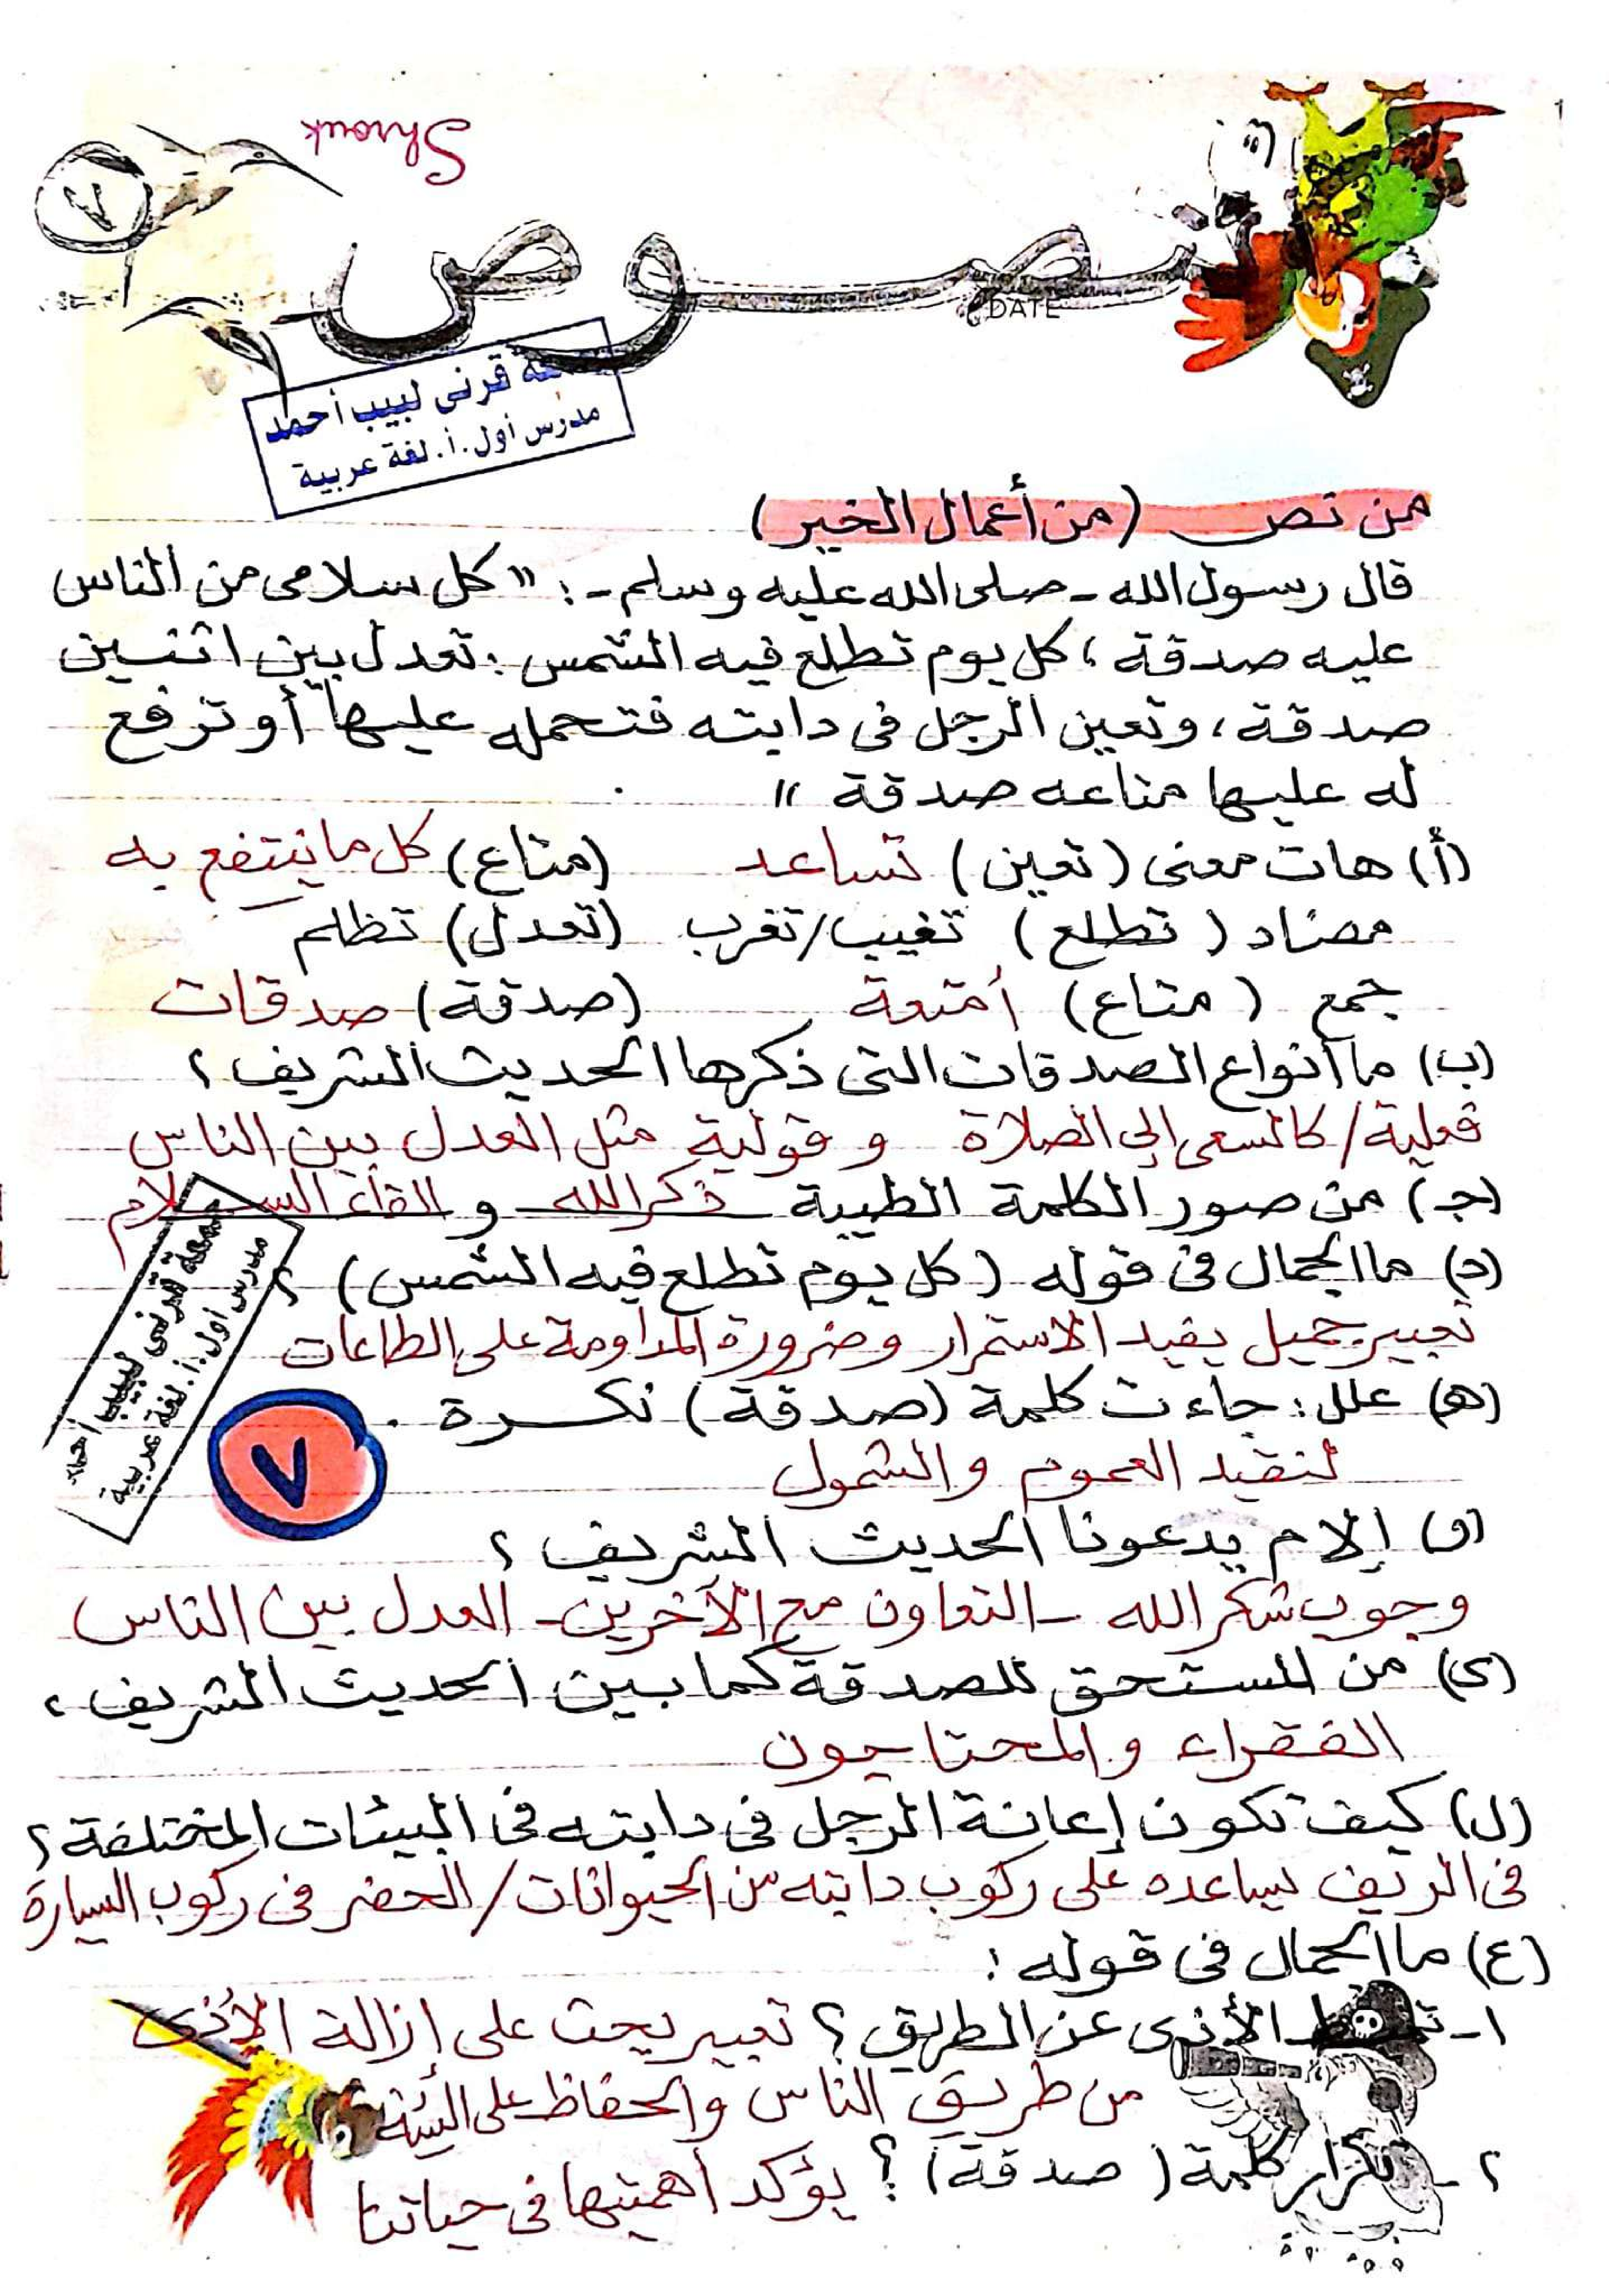 Shrouk
٧
نصوص
DATE
قرنى لبيب أحمد
مدرس أول.أ. لغة عربية
من نص (من أعمال الخير)
قال رسول الله - صلى الله عليه وسلم - : " كل سلامى من الناس
عليه صدقة ، كل يوم تطلع فيه الشمس : تعدل بين اثنين
صدقة ، وتعين الرجل فى دابته فتحمله عليها أو ترفع
له عليها متاعه صدقة "
(أ) هات معنى (تعين) تساعد (متاع) كل ما ينتفع به
مضاد (تطلع) تغيب/تغرب (تعدل) تظلم
جمع (متاع) أمتعة (صدقة) صدقات
(ب) ما أنواع الصدقات التى ذكرها الحديث الشريف ؟
فعلية/ كالسعى إلى الصلاة و قولية مثل العدل بين الناس
(جـ) من صور الكلمة الطيبة ذكر الله و القاء السلام
(د) ما الجمال فى قوله (كل يوم تطلع فيه الشمس) ؟
تعبير جميل يفيد الاستمرار وضرورة المداومة على الطاعات
(هـ) علل : جاءت كلمة (صدقة) نكرة .
لتفيد العموم والشمول
جمعة قرنى لبيب أحمد
مدرس أول.أ. لغة عربية
٧
(و) إلام يدعونا الحديث الشريف ؟
وجوب شكر الله - التعاون مع الآخرين - العدل بين الناس
(ى) من المستحق للصدقة كما بين الحديث الشريف ؟
الفقراء والمحتاجون
(ل) كيف تكون إعانة الرجل فى دابته فى البيئات المختلفة ؟
فى الريف يساعده على ركوب دابته من الحيوانات/ الحضر فى ركوب السيارة
(ع) ما الجمال فى قوله :
١- تميط الأذى عن الطريق ؟ تعبير يحث على إزالة الأذى
من طريق الناس والحفاظ على البيئة
٢- تكرار كلمة (صدقة) ؟ يؤكد أهميتها فى حياتنا